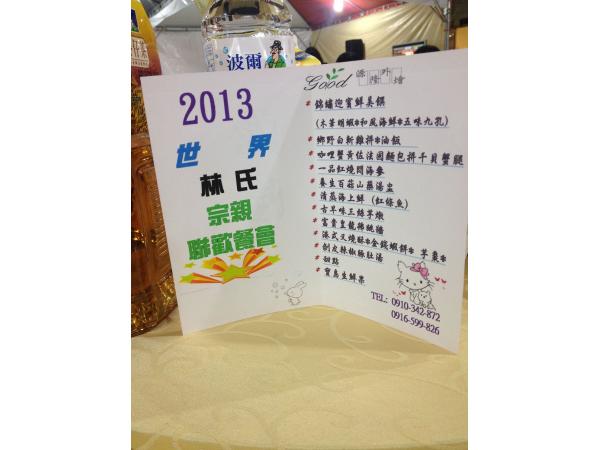 波爾
2013
世界
林氏
宗親
聯歡餐會
Good
源隆外燴
*錦繡迎賓鮮美饌
(木筆明蝦*和風海鮮*五味九孔)
*鄉野白斬雞拼*油飯
*咖哩蟹黃佐法國麵包拼干貝蟹腿
*一品紅燒悶海參
*養生百菇山藥湯盅
*清蒸海上鮮(紅條魚)
*古早味三絲芋燉
*富貴皇龍捲跳牆
*港式叉燒酥*金錢蝦餅*芋棗*
*剁皮辣椒豬肚湯
*甜點
*寶島生鮮果
TEL: 0910-342-872
0916-599-826